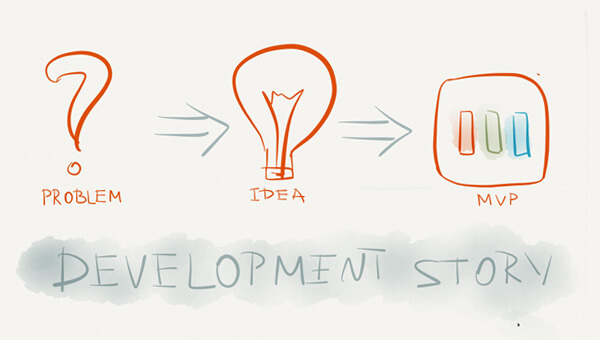 PROBLEM IDEA MVP
DEVELOPMENT STORY